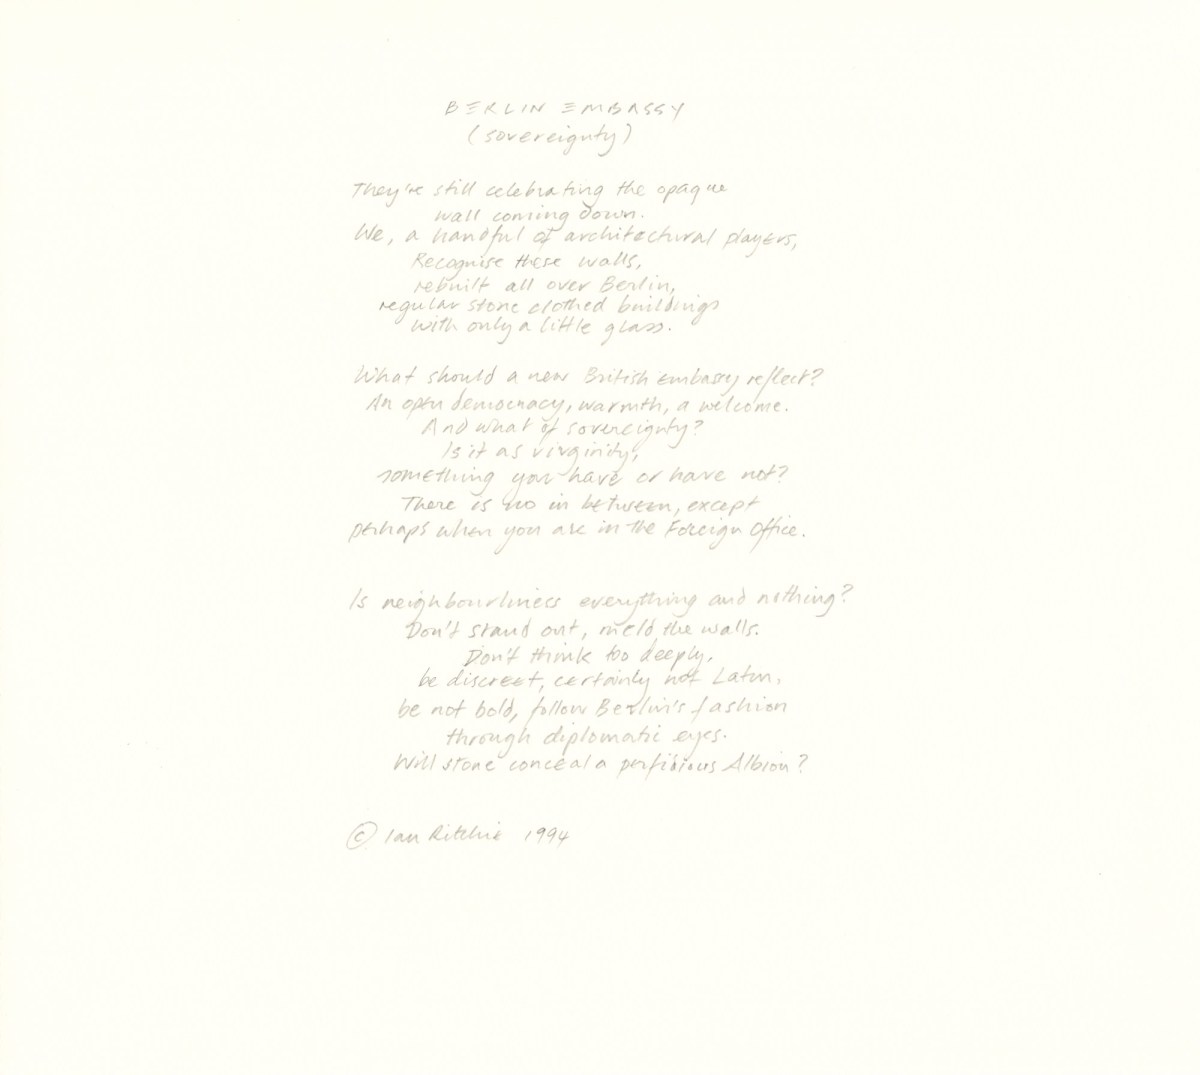 BERLIN EMBASSY
(sovereignty)
They're still celebrating the opaque
wall coming down.
We, a handful of architectural players,
Recognise these walls,
rebuilt all over Berlin,
regular stone clothed buildings
with only a little glass.
What should a new British Embassy reflect?
An open democracy, warmth, a welcome.
And what of sovereignty?
Is it as virginity,
something you have or have not?
There is no in between, except
perhaps when you are in the Foreign Office.
Is neighbourliness everything and nothing?
Don't stand out, meld the walls.
Don't think too deeply,
be discreet, certainly not Latin,
be not bold, follow Berlin's fashion
through diplomatic eyes.
Will stone conceal a perfidious Albion?
© Ian Ritchie 1994